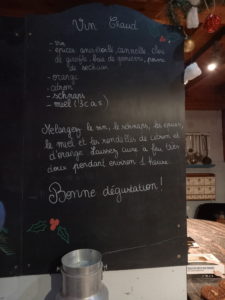 Vin Chaud
- vin
- épices: anis étoilé, cannelle, clous
de girofle, baie de genièvre, poivre
de sechuan
- orange
- citron
- schnaps
- miel (3 c a s)
Mélangez le vin, le schnaps, les épices,
le miel et les rondelles de citron et
d'orange. Laissez cuire à feu très
doux pendant environ 1 heure.
Bonne dégustation!